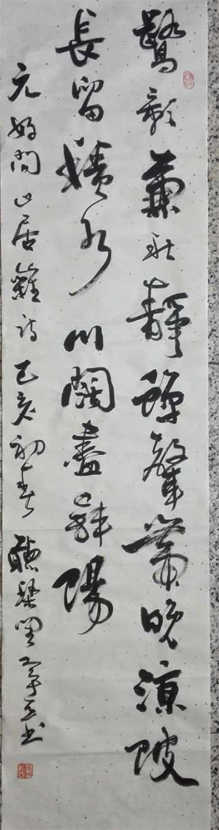 鷺影兼秋靜蟬聲帶晚涼陂
長留積水川闊盡斜陽
元好問山居雜詩己亥初春聽琴書